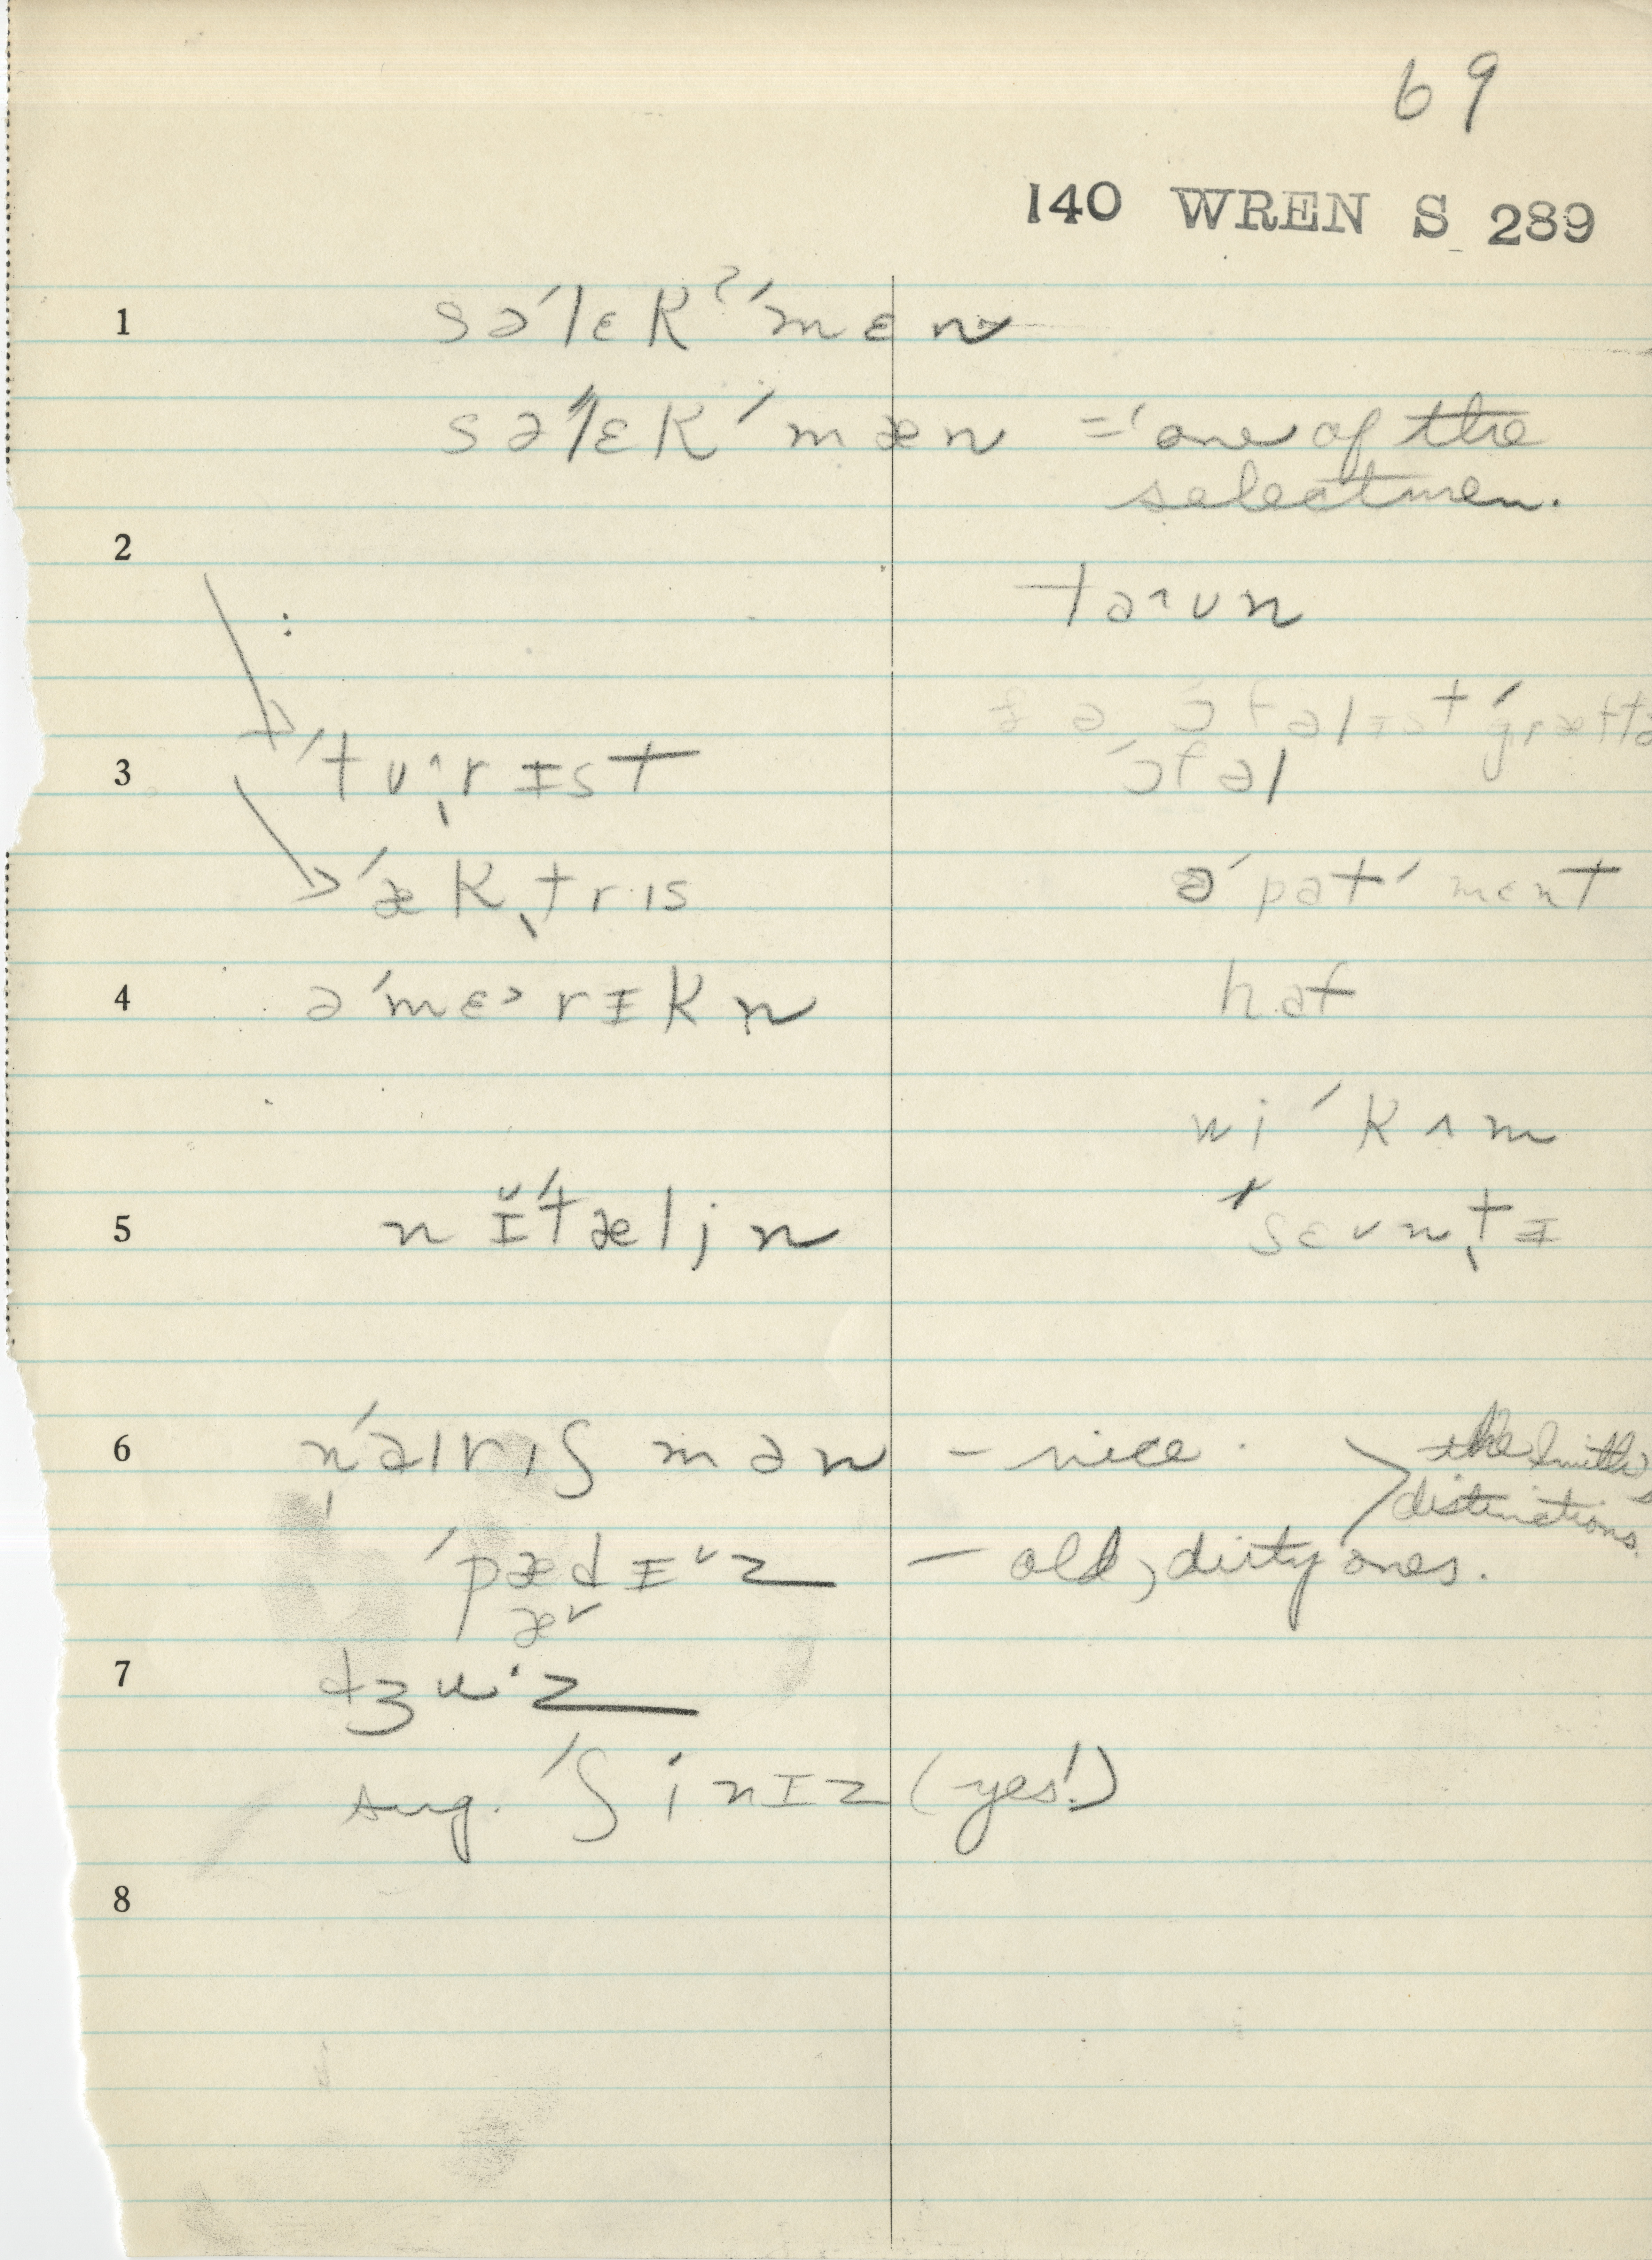 69
140 WREN S 289
1 sə'lɛkˀ'mɛn
sə'lɛk'mæn = one of the
selectmen.
2
taˆʊn
ɔfəl
3 'tʊˆrɪst
'ækˌtrɪs
ə'pat'mɛnt
4 ə'mɛ˃rɪkn
haf
wi 'kʌm
5 n ɪ̆'tæljn
'sɛvnˌtɪ
6 n'aɪrɪʃmən – nice. the Smith's
distinctions.
'pædɪˇz – old, dirty ones.
æˇ
7 dʒuˑz
sug. 'ʃinɪz (yes!)
8